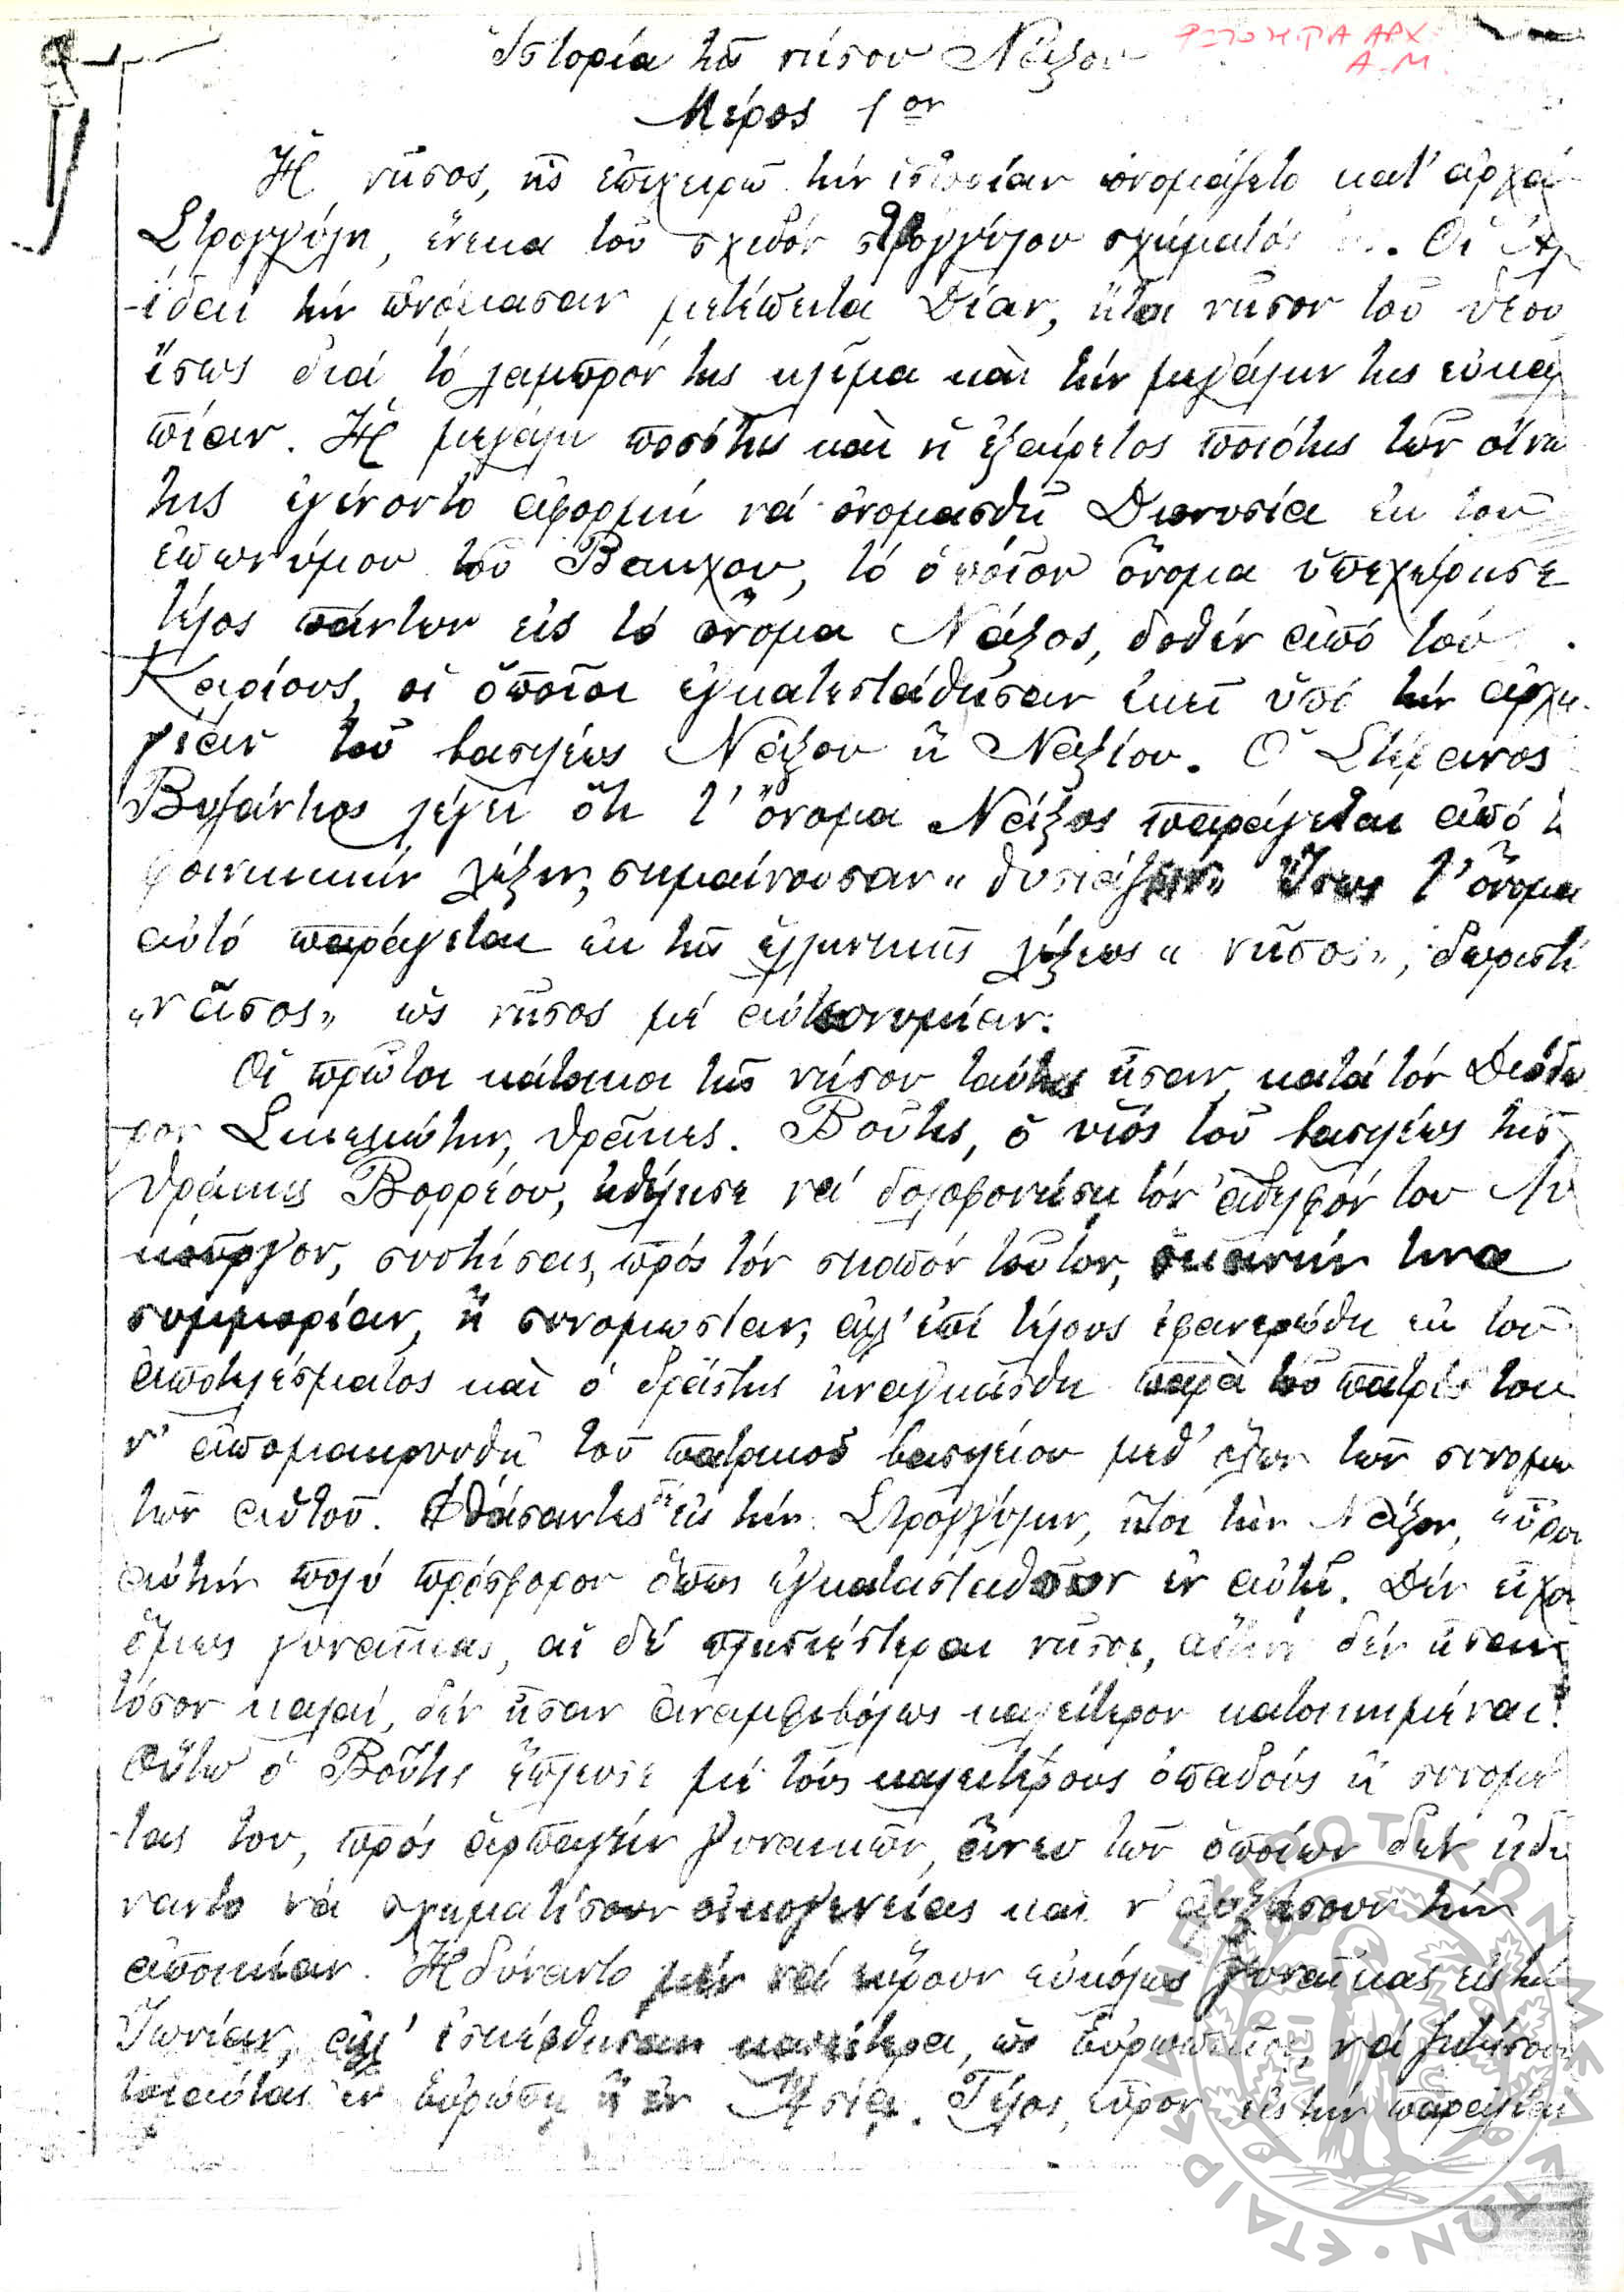 Ἱστορία τῆς νήσου Νάξου
ΦΩΤΟ ΑΡΧ
Α.Μ.
Μέρος 1ον
Ἡ νῆσος, ἧς ἐπιχειρῶ τήν ἱστορίαν ὠνομάζετο κατ' ἀρχάς
Στρογγύλη, ἕνεκα τοῦ σχεδόν στρογγύλου σχήματός της. Οἱ
-ΐδαι τήν ὠνόμασαν μετέπειτα Δίαν, ἤτοι νῆσον τοῦ θεοῦ
ἴσως διά τό λαμπρόν της κλῖμα καὶ τήν μεγάλην της εὐκαρ
πίαν. Ἡ μεγάλη ποσότης καὶ ἡ ἐξαίρετος ποιότης τῶν οἴνων
της ἐγένοντο ἀφορμή νά ὀνομασθῇ Διονυσία ἐκ τοῦ
ἐπωνύμου τοῦ Βάκχου, τό ὁποῖον ὄνομα ὑπεχώρησε
τέλος πάντων εἰς τό ὄνομα Νάξος, δοθέν ἀπό τούς
Καρίους, οἱ ὁποῖοι ἐγκατεστάθησαν ἐκεῖ ὑπό τήν ἀρχη-
γίαν τοῦ βασιλέως Νάξου ἤ Ναξίου. Ὁ Στέφανος
Βυζάντιος λέγει ὅτι τ' ὄνομα Νάξος παράγεται ἀπό
φοινικικήν λέξιν, σημαίνουσαν «θυσιάζειν» Ἴσως τ' ὄνομα
αὐτό παράγεται ἐκ τῆς ἑλληνικῆς λέξεως «νῆσος», δωριστί
«νᾶσος» ὡς νῆσος μέ αὐτονομίαν.
Οἱ πρῶτοι κάτοικοι τῆς νήσου ταύτης ἦσαν, κατά τόν Διόδω
ρον Σικελιώτην, Θρᾷκες. Βούτης, ὁ υἱός τοῦ βασιλέως τῆς
Θράκης Βορρέου, ἠθέλησε νά δολοφονήσῃ τόν ἀδελφόν του Λυ
κοῦργον, συστήσας, πρός τόν σκοπόν τοῦτον, τινα
συμμορίαν, ἤ συνομωσίαν, ἀλλ' ἐπί τέλους ἐφανερώθη ἐκ τοῦ
ἀποτελέσματος καὶ ὁ δράστης ἠναγκάσθη παρὰ τοῦ πατρός του
ν' ἀπομακρυνθῇ τοῦ πατρικοῦ βασιλείου μεθ' ὅλων τῶν συνομω
τῶν αὐτοῦ. Φθάσαντες εἰς τήν Στρογγύλην, ἤτοι τὴν Νάξον, εὗρον
αὐτήν πολύ πρόσφορον ὅπως ἐγκατασταθοῦν ἐν αὐτῇ. Δέν εἶχον
ὅμως γυναῖκας, αἱ δέ πλησιέστεραι νῆσοι, δέν ἦσαν
τόσον καλαί, δέν ἦσαν ἀναμφιβόλως καλείτερον κατοικημέναι.
Οὕτω ὁ Βούτης ἔπλευσε μέ τούς καλειτέρους ὀπαδούς ἤ συνομώ
-τας του, πρός ἁρπαγήν γυναικῶν, ἄνευ τῶν ὁποίων δέν ἠδύ
ναντο νά σχηματίσουν οἰκογενείας καὶ ν' αὐξήσουν τήν
ἀποικίαν. Ἠδύναντο μέν νά εὕρουν εὐκόλως γυναῖκας εἰς τήν
Ἰωνίαν, ἀλλ' ἐσκέφθησαν καλείτερα, ὡς Εὐρωπαῖοι, νά ζητήσουν
τοιαύτας ἐν Εὐρώπῃ ἤ ἐν Ἀσίᾳ. Τέλος, εὗρον εἰς τήν παραλίαν
ΕΤΑΙΡΕΙΑ ΗΠΕΙΡΩΤΙΚΩΝ ΜΕΛΕΤΩΝ